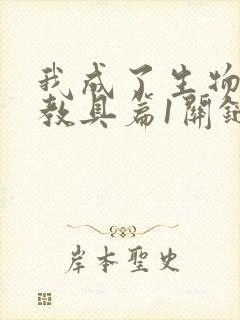 我成了生物
教具篇1關鍵
岸本聖史